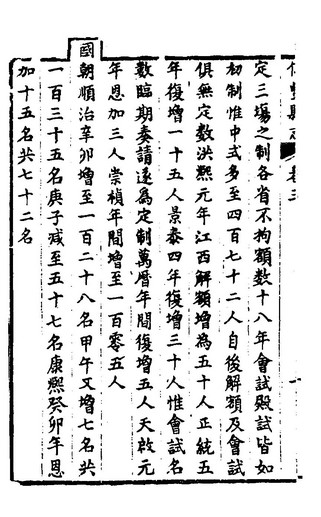 縣志 卷三
定三塲之制各省不拘額數十八年會試殿試皆如
初制惟中式多至四百七十二人自後解額及會試
俱無定數洪熙元年江西解額增為五十人正統五
年復增一十五人景泰四年復增三十人惟會試名
數臨期奏請遂為定制萬曆年間復增五人天啟元
年恩加三人崇禎年間增至一百零五人
國朝順治辛卯增至一百二十八名甲午又增七名共
一百三十五名庚子減至五十七名康熙癸卯年恩
加十五名共七十二名